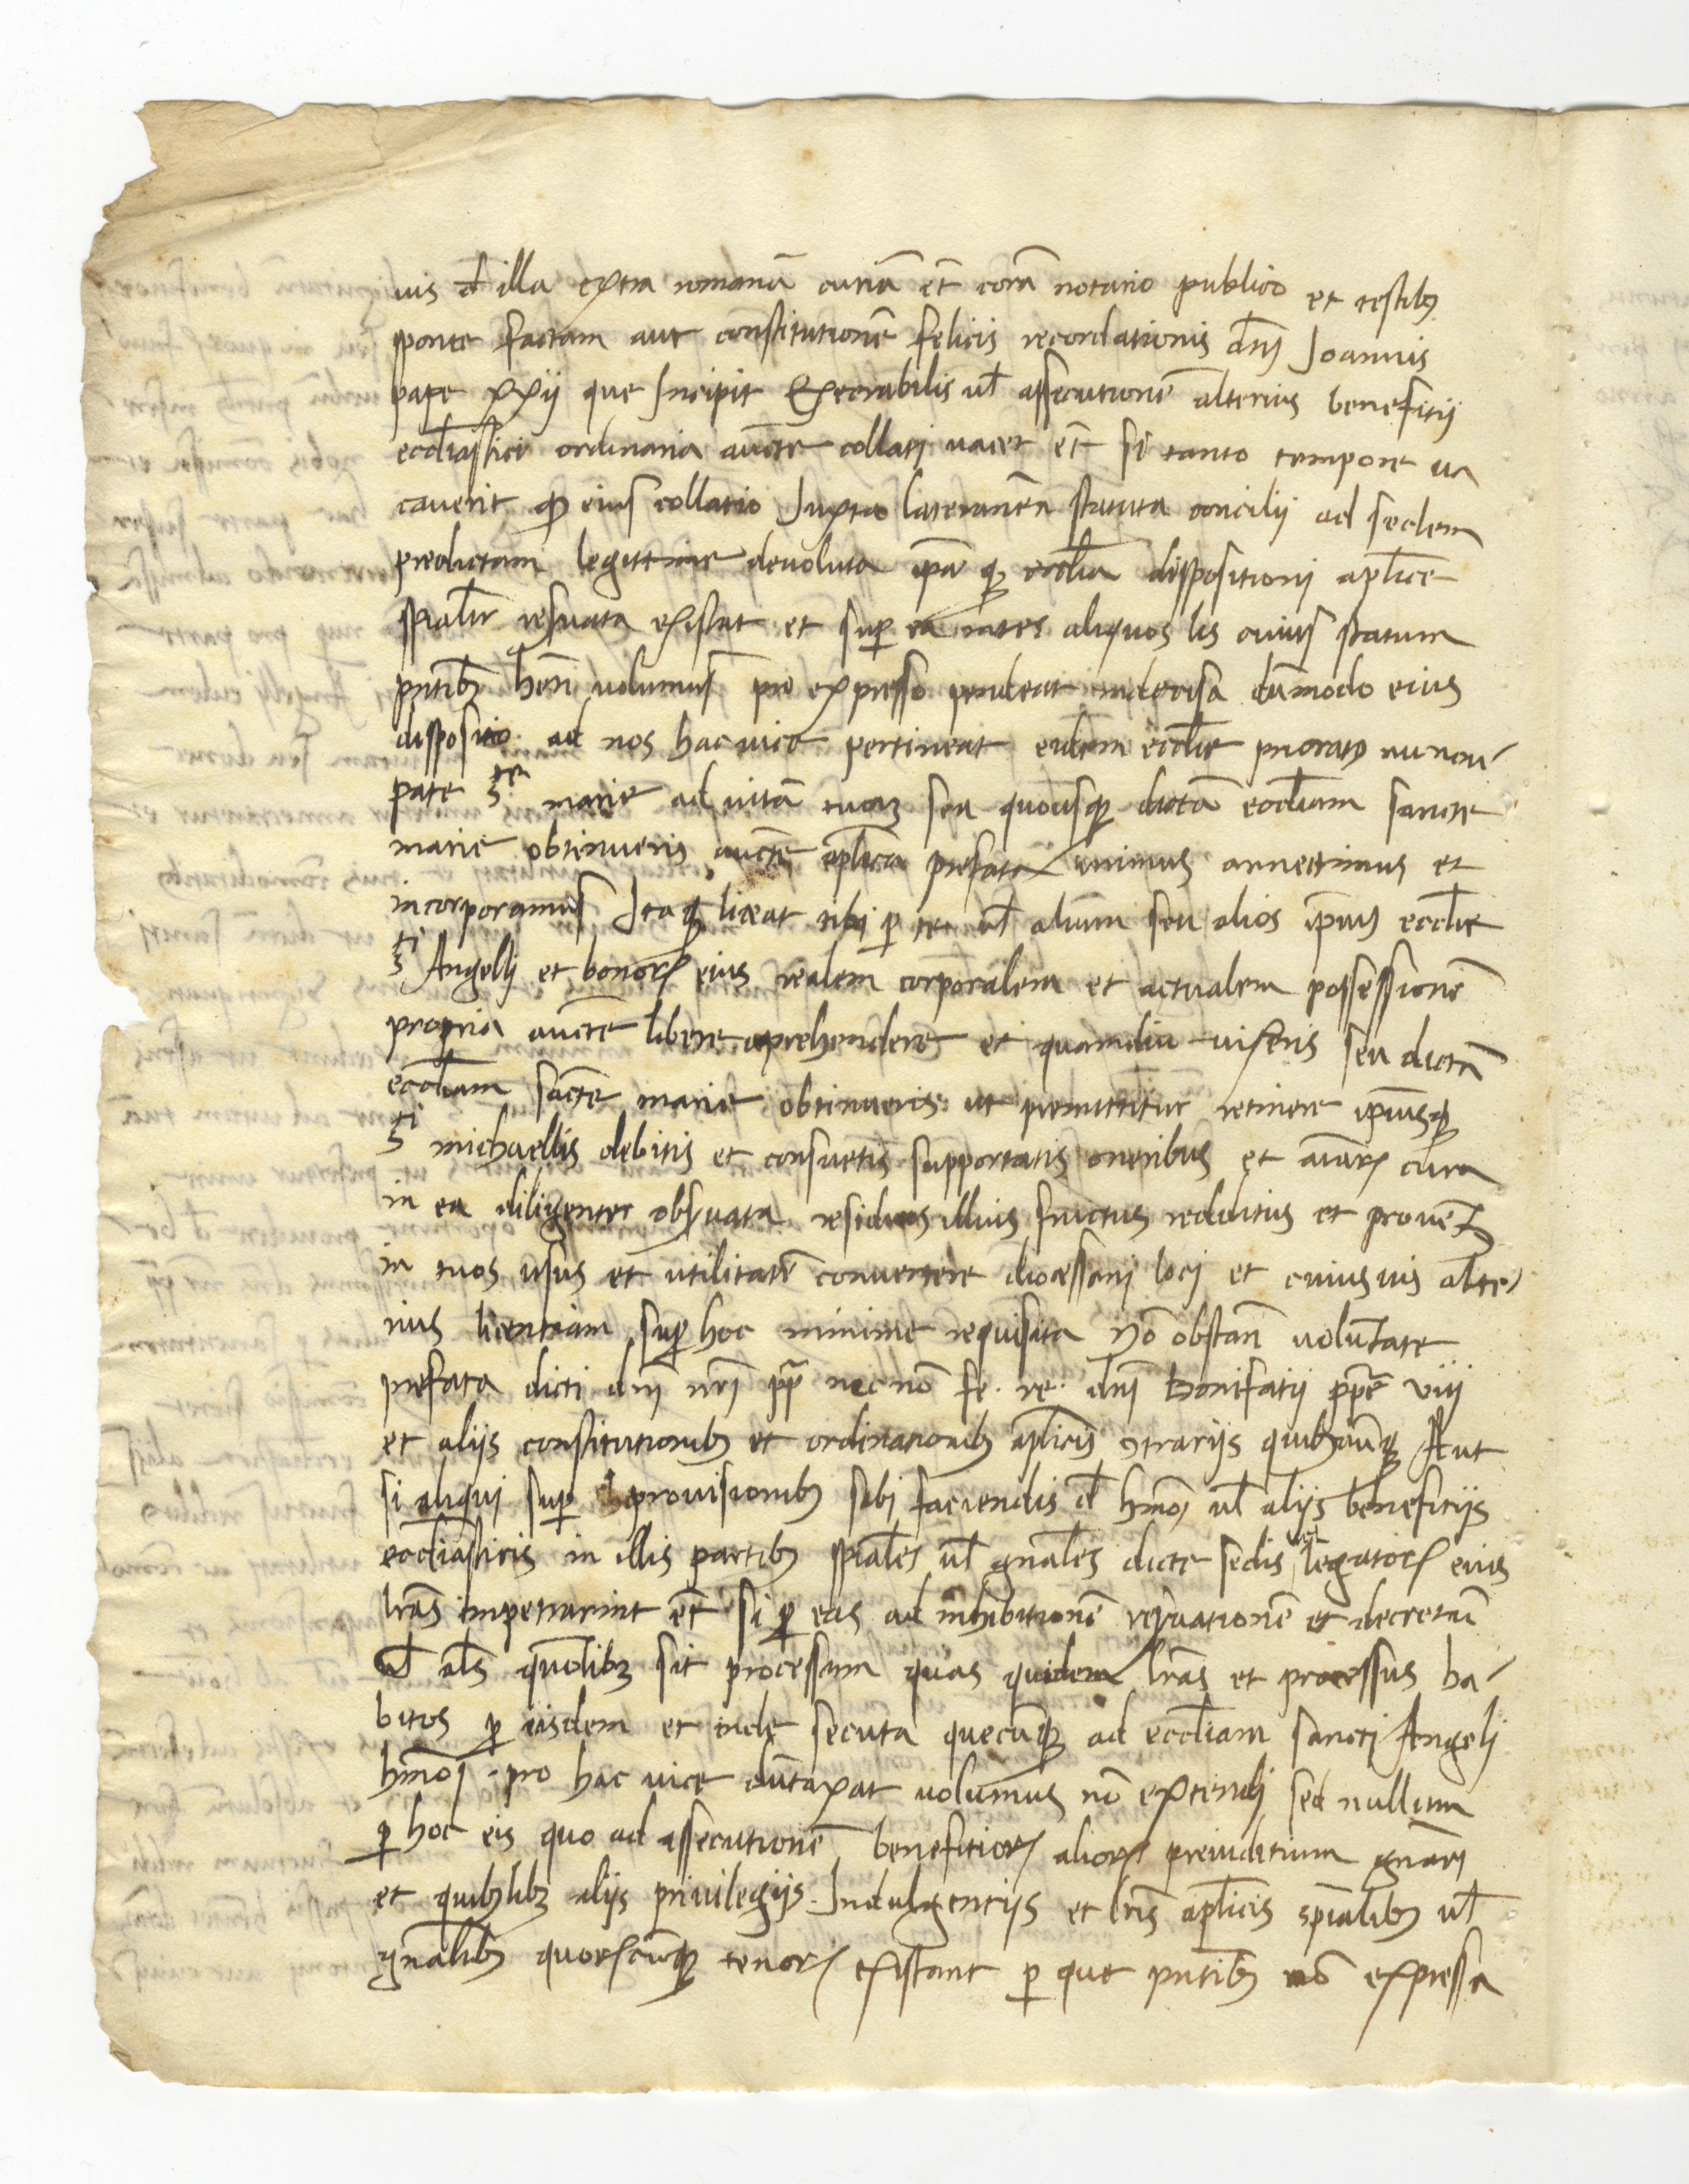 uis d̄ illa extra romanā curiā et̄ corā notario publico et testibȝ
sponte factam aut constitutionē felicis recordationis dn̄j Joannis
pape xxij que Incipit Execrabilis ul̄ assecutionē alterius benefitij
eccl̄iastici ordinaria auc̄te collatj uacet et̄ si tanto tempore ua
cauerit ꝙ eius collatio Juxta lateranen̄ statuta concilij ad sedem
predictam legittime deuoluta ip̄aqꝫ eccl̄ia dispositionj ap̄lice
sp̄ial̄r resuata existat et suꝑ ea inter aliquos lis cuius statum
pn̄tibȝ hēri uolumus pro expresso pendeat indecisa dūmodo eius
dispositio ad nos hac uice pertineat eidem eccl̄ie prioratꝰ nuncu-
pate Ste marie ad uitā tuaȝ seu quousqꝫ dictā eccl̄iam sancte
marie obtinueris auc̄te ap̄lica prefata unimus annectimus et
incorporamus Ita ꝙ liceat tibj ꝑ te ul̄ alium seu alios ip̄ius eccl̄ie
Sti Angelj et bonorꝝ eius realem corporalem et actualem possessionē
propria auc̄te libere aprehendere et quamdiu uixeris seu dictā
eccl̄iam sācte marie obtinueris ut premittitur retinere ip̄iusqꝫ
Sti michaellis debitis et consuetis supportatis oneribus et aīarꝝ cura
in ea diligenter obseruata residuos illius fructus redditus et prouentꝰ
in tuos usus et utilitatē conuertere diocessanj locj et cuiusuis alte-
rius licentiam suꝑ hoc minime requisita Nō obstan̄ uoluntate
prefata dicti dn̄j nr̄j pp̄ nec nō fe. re. dn̄j Bonifatij pp̄e viij
et alijs constitutionibȝ et ordinationibȝ ap̄licis ꝯtrarijs quibȝcūqꝫ Aut
si aliqui suꝑ prouisionibȝ sibj faciendis d̄ hmōj ul̄ alijs beneficijs
eccl̄iasticis in illis partibȝ sp̄iales ul̄ gn̄ales dicte sedis uel legatorꝝ eius
lr̄as impetrarint et̄ si ꝑ eas ad inhibitionē reseruationē et decretū
ul̄ al̄s quōlibȝ sit processum quas quidem lr̄as et processus ha-
bitos ꝑ eisdem et inde secuta quecūqꝫ ad eccl̄iam sanctj Angelj
hmōj pro hac uice dūtaxat uolumus nō extendj sed nullum
ꝑ hoc eis quo ad assecutionē benefitiorꝝ aliorꝝ preiuditium gn̄arj
et quibȝlibȝ alijs priuilegijs Indulgentijs et lr̄is ap̄licis sp̄ialibȝ ul̄
gn̄alibȝ quorꝝcūqꝫ tenorꝝ existant ꝑ que pn̄tibȝ nō expressa